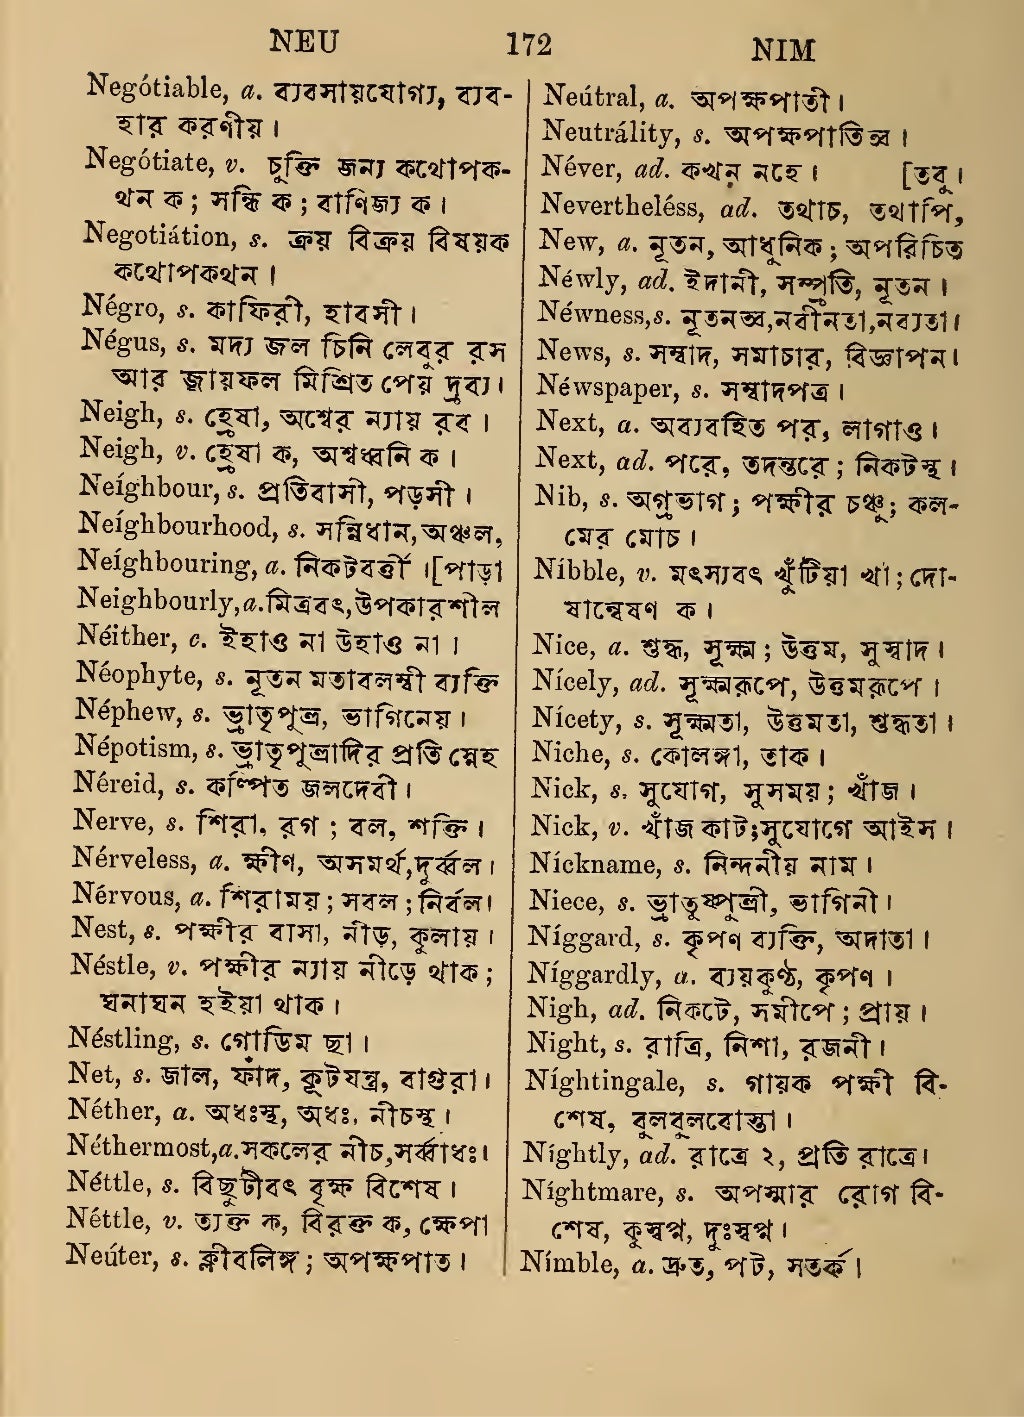 NEU 172 NIM
Negótiable, a. ব্যবসায়যোগ্য, ব্যব-
হার করণীয়।
Negótiate, v. চুক্তি জন্য কথোপক-
থন ক; সন্ধি ক; বাণিজ্য ক।
Negotiátion, s. ক্রয় বিক্রয় বিষয়ক
কথোপকথন।
Négro, s. কাফিরী, হাবসী।
Négus, s. মদ্য জল চিনি লেবুর রস
আর জ্বায়ফল মিশ্রিত পেয় দ্রব্য।
Neigh, s. হ্রেষা, অশ্বের ন্যায় রব।
Neigh, v. হ্রেষা ক, অশ্বধ্বনি ক।
Neíghbour, s. প্রতিবাসী, পড়সী।
Neíghbourhood, s. সন্নিধান, অঞ্চল,
Neíghbouring, a. নিকটবর্ত্তী।[পাড়া
Neighbourly, a. মিত্রবৎ, উপকারশীল
Néither, c. ইহাও না উহাও না।
Néophyte, s. নূতন মতাবলম্বী ব্যক্তি
Néphew, s. ভ্রাতৃপুত্র, ভাগিনেয়।
Népotism, s. ভ্রাতৃপুত্রাদির প্রতি স্নেহ
Néreid, s. কল্পিত জলদেবী।
Nerve, s. শিরা, রগ; বল, শক্তি।
Nérveless, a. ক্ষীণ, অসমর্থ, দুর্ব্বল।
Nérvous, a. শিরাময়; সবল; নির্বল।
Nest, s. পক্ষীর বাসা, নীড়, কুলায়।
Néstle, v. পক্ষীর ন্যায় নীড়ে থাক;
ঘনাঘন হইয়া থাক।
Néstling, s. গোডিম ছা।
Net, s. জাল, ফাঁদ, কূটযন্ত্র, বাগুরা।
Néther, a. অধঃস্থ, অধঃ, নীচস্থ।
Néthermost, a. সকলের নীচ, সর্ব্বাধঃ।
Néttle, s. বিছুটীবৎ বৃক্ষ বিশেষ।
Néttle, v. ত্যক্ত ক, বিরক্ত ক, ক্ষেপা
Neúter, s. ক্লীবলিঙ্গ; অপক্ষপাত।
Neútral, a. অপক্ষপাতী।
Neutrálity, s. অপক্ষপাতিত্ব।
Néver, ad. কখন নহে। [তবু।
Nevertheléss, ad. তথাচ, তথাপি,
New, a. নূতন, আধুনিক; অপরিচিত
Néwly, ad. ইদানী, সম্প্রতি, নূতন।
Néwness, s. নূতনত্ব, নবীনতা, নব্যতা।
News, s. সম্বাদ, সমাচার, বিজ্ঞাপন।
Néwspaper, s. সম্বাদপত্র।
Next, a. অব্যবহিত পর, লাগাও।
Next, ad. পরে, তদন্তরে; নিকটস্থ।
Nib, s. অগ্রভাগ; পক্ষীর চঞ্চু; কল-
মের মোচ।
Níbble, v. মৎস্যবৎ খুঁটিয়া খা; দো-
ষান্বেষণ ক।
Nice, a. শুদ্ধ, সূক্ষ্ম; উত্তম, সুস্বাদ।
Nícely, ad. সূক্ষ্মরূপে, উত্তমরূপে।
Nícety, s. সূক্ষ্মতা, উত্তমতা, শুদ্ধতা।
Niche, s. কোলঙ্গা, তাক।
Nick, s. সুযোগ, সুসময়; খাঁজ।
Nick, v. খাঁজ কাট; সুযোগে আইস।
Níckname, s. নিন্দনীয় নাম।
Niece, s. ভ্রাতুষ্পুত্রী, ভাগিনী।
Níggard, s. কৃপণ ব্যক্তি, অদাতা।
Níggardly, a. ব্যয়কুণ্ঠ, কৃপণ।
Nigh, ad. নিকটে, সমীপে; প্রায়।
Night, s. রাত্রি, নিশা, রজনী।
Níghtingale, s. গায়ক পক্ষী বি-
শেষ, বুলবুলবোস্তা।
Níghtly, ad. রাত্রে ২, প্রতি রাত্রে।
Níghtmare, s. অপস্মার রোগ বি-
শেষ, কুস্বপ্ন, দুঃস্বপ্ন।
Nímble, a. দ্রুত, পটু, সতর্ক।